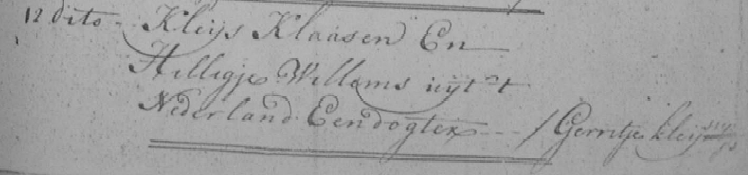 12 dito - Kleijs Klaasen En
Hilligje Willems uijt 't
Nederland Een dogter --- / Gerritje kleijs